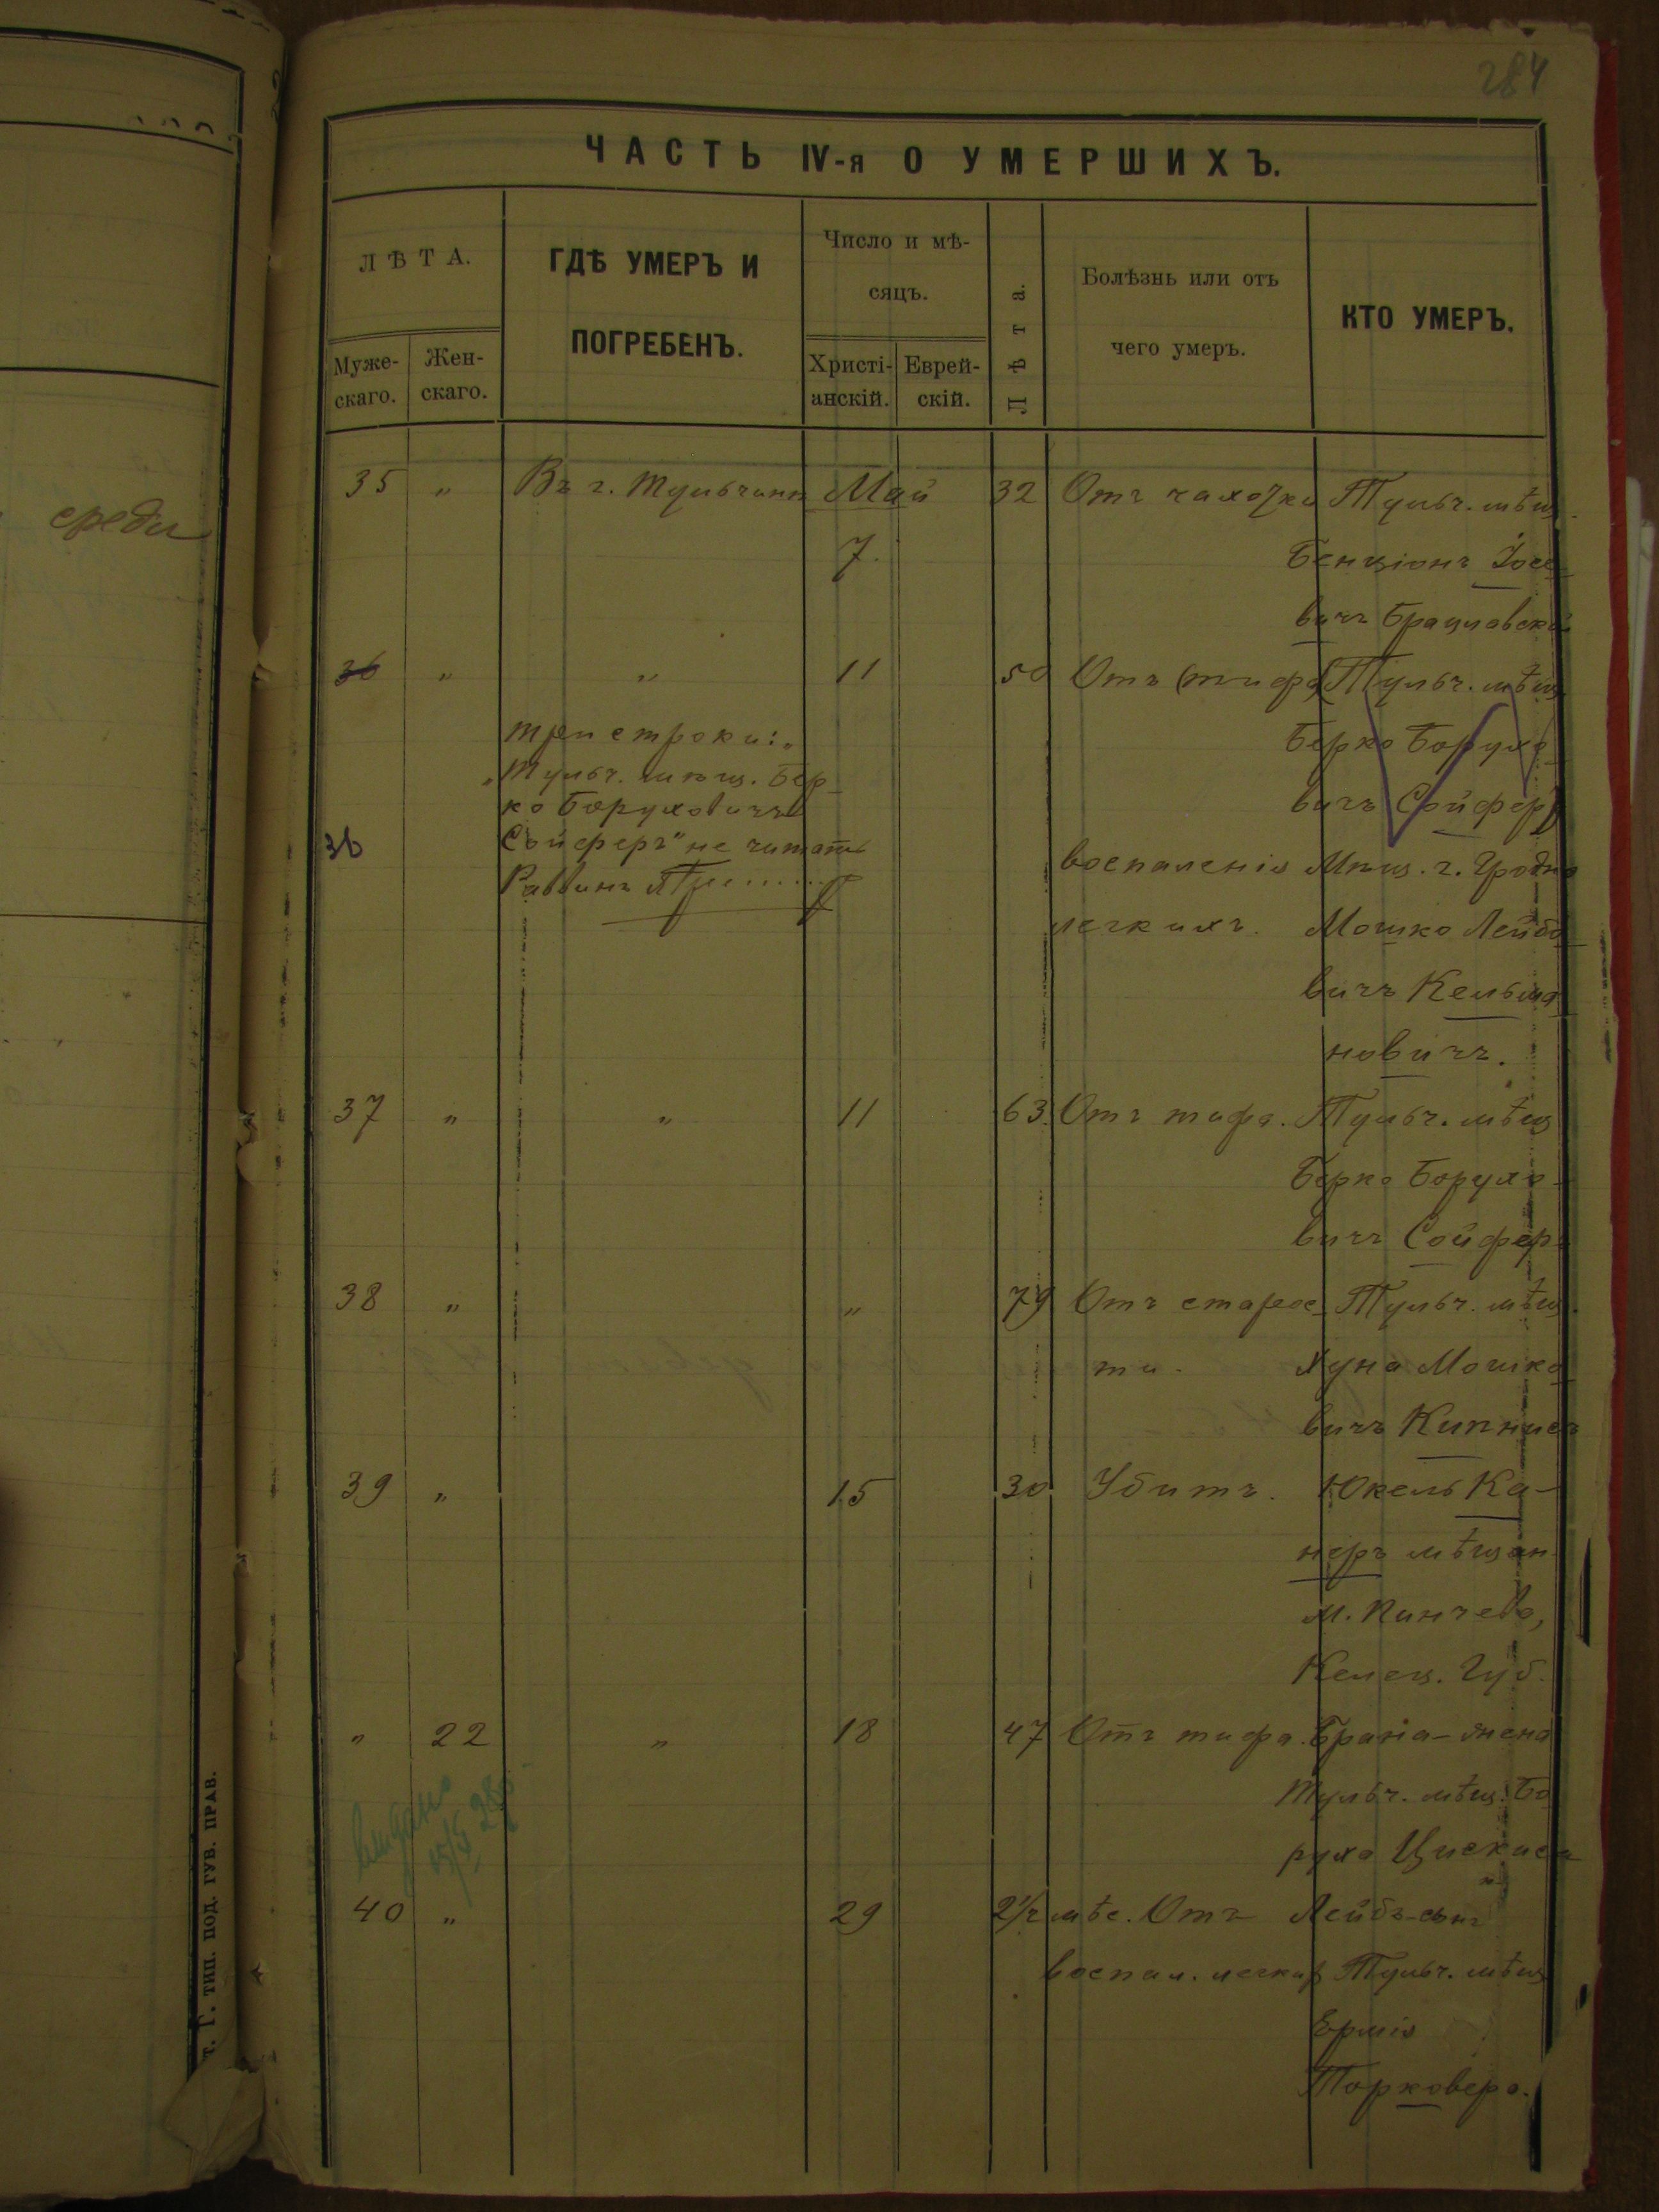 284
ЧАСТЬ IV-я О УМЕРШИХЪ.
ЛѢТА.
Муже-
скаго.
Жен-
скаго.
ГДѢ УМЕРЪ И
ПОГРЕБЕНЪ.
Число и мѣ-
сяцъ.
Христі-
анскій.
Еврей-
скій.
Лѣта.
Болѣзнь или отъ
чего умеръ.
КТО УМЕРЪ.
среди
35 „ Въ г. Тульчинѣ Май 32 Отъ чахотки Тульч. мѣщ.
7. Бенціонъ Іосе-
вичъ Брацлавскій
36 „ „ 11 50 Отъ (тифа) (Тульч. мѣщ.
Берко Борухо-
вичъ Сойферъ)
три строки: „
„Тульч. мѣщ. Бер-
ко Боруховичъ
Сойферъ" не читать
Раввинъ
36 воспаленія Мѣщ. г. Гродно
легкихъ. Мошко Лейбо-
вичъ Кельма-
новичъ.
37 „ „ 11 63. Отъ тифа. Тульч. мѣщ
Берко Борухо-
вичъ Сойферъ
38 „ „ 79 Отъ старос- Тульч. мѣщ.
ти. Хуна Мошко-
вичъ Кипнисъ
39 „ 15 30 Убитъ. Юкель Ка-
неръ мѣщан.
м. Пинчево,
Келец. Губ.
„ 22 „ 18 47 Отъ тифа. жена
Тульч. мѣщ. Бо-
руха
выдано
40 „ 29 2½ мѣс. Отъ Лейбъ-сынъ
воспал. легких Тульч. мѣщ
Ермія
Торковера.
Т. Г. ТИП. ПОД. ГУВ. ПРАВ.